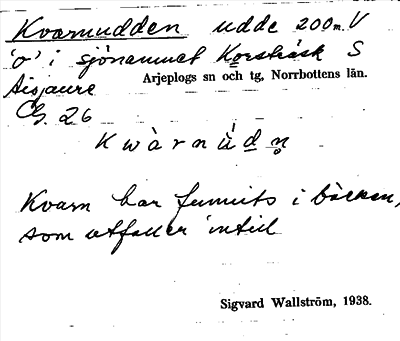 Kvarnudden udde 200m. V
'o' i sjönamnet Korsträsk S
Arjeplogs sn och tg, Norrbottens län.
Aisjaure
26
Kwàrnùdn
Kvarn har funnits i bäcken,
som utfaller intill
Sigvard Wallström, 1938.